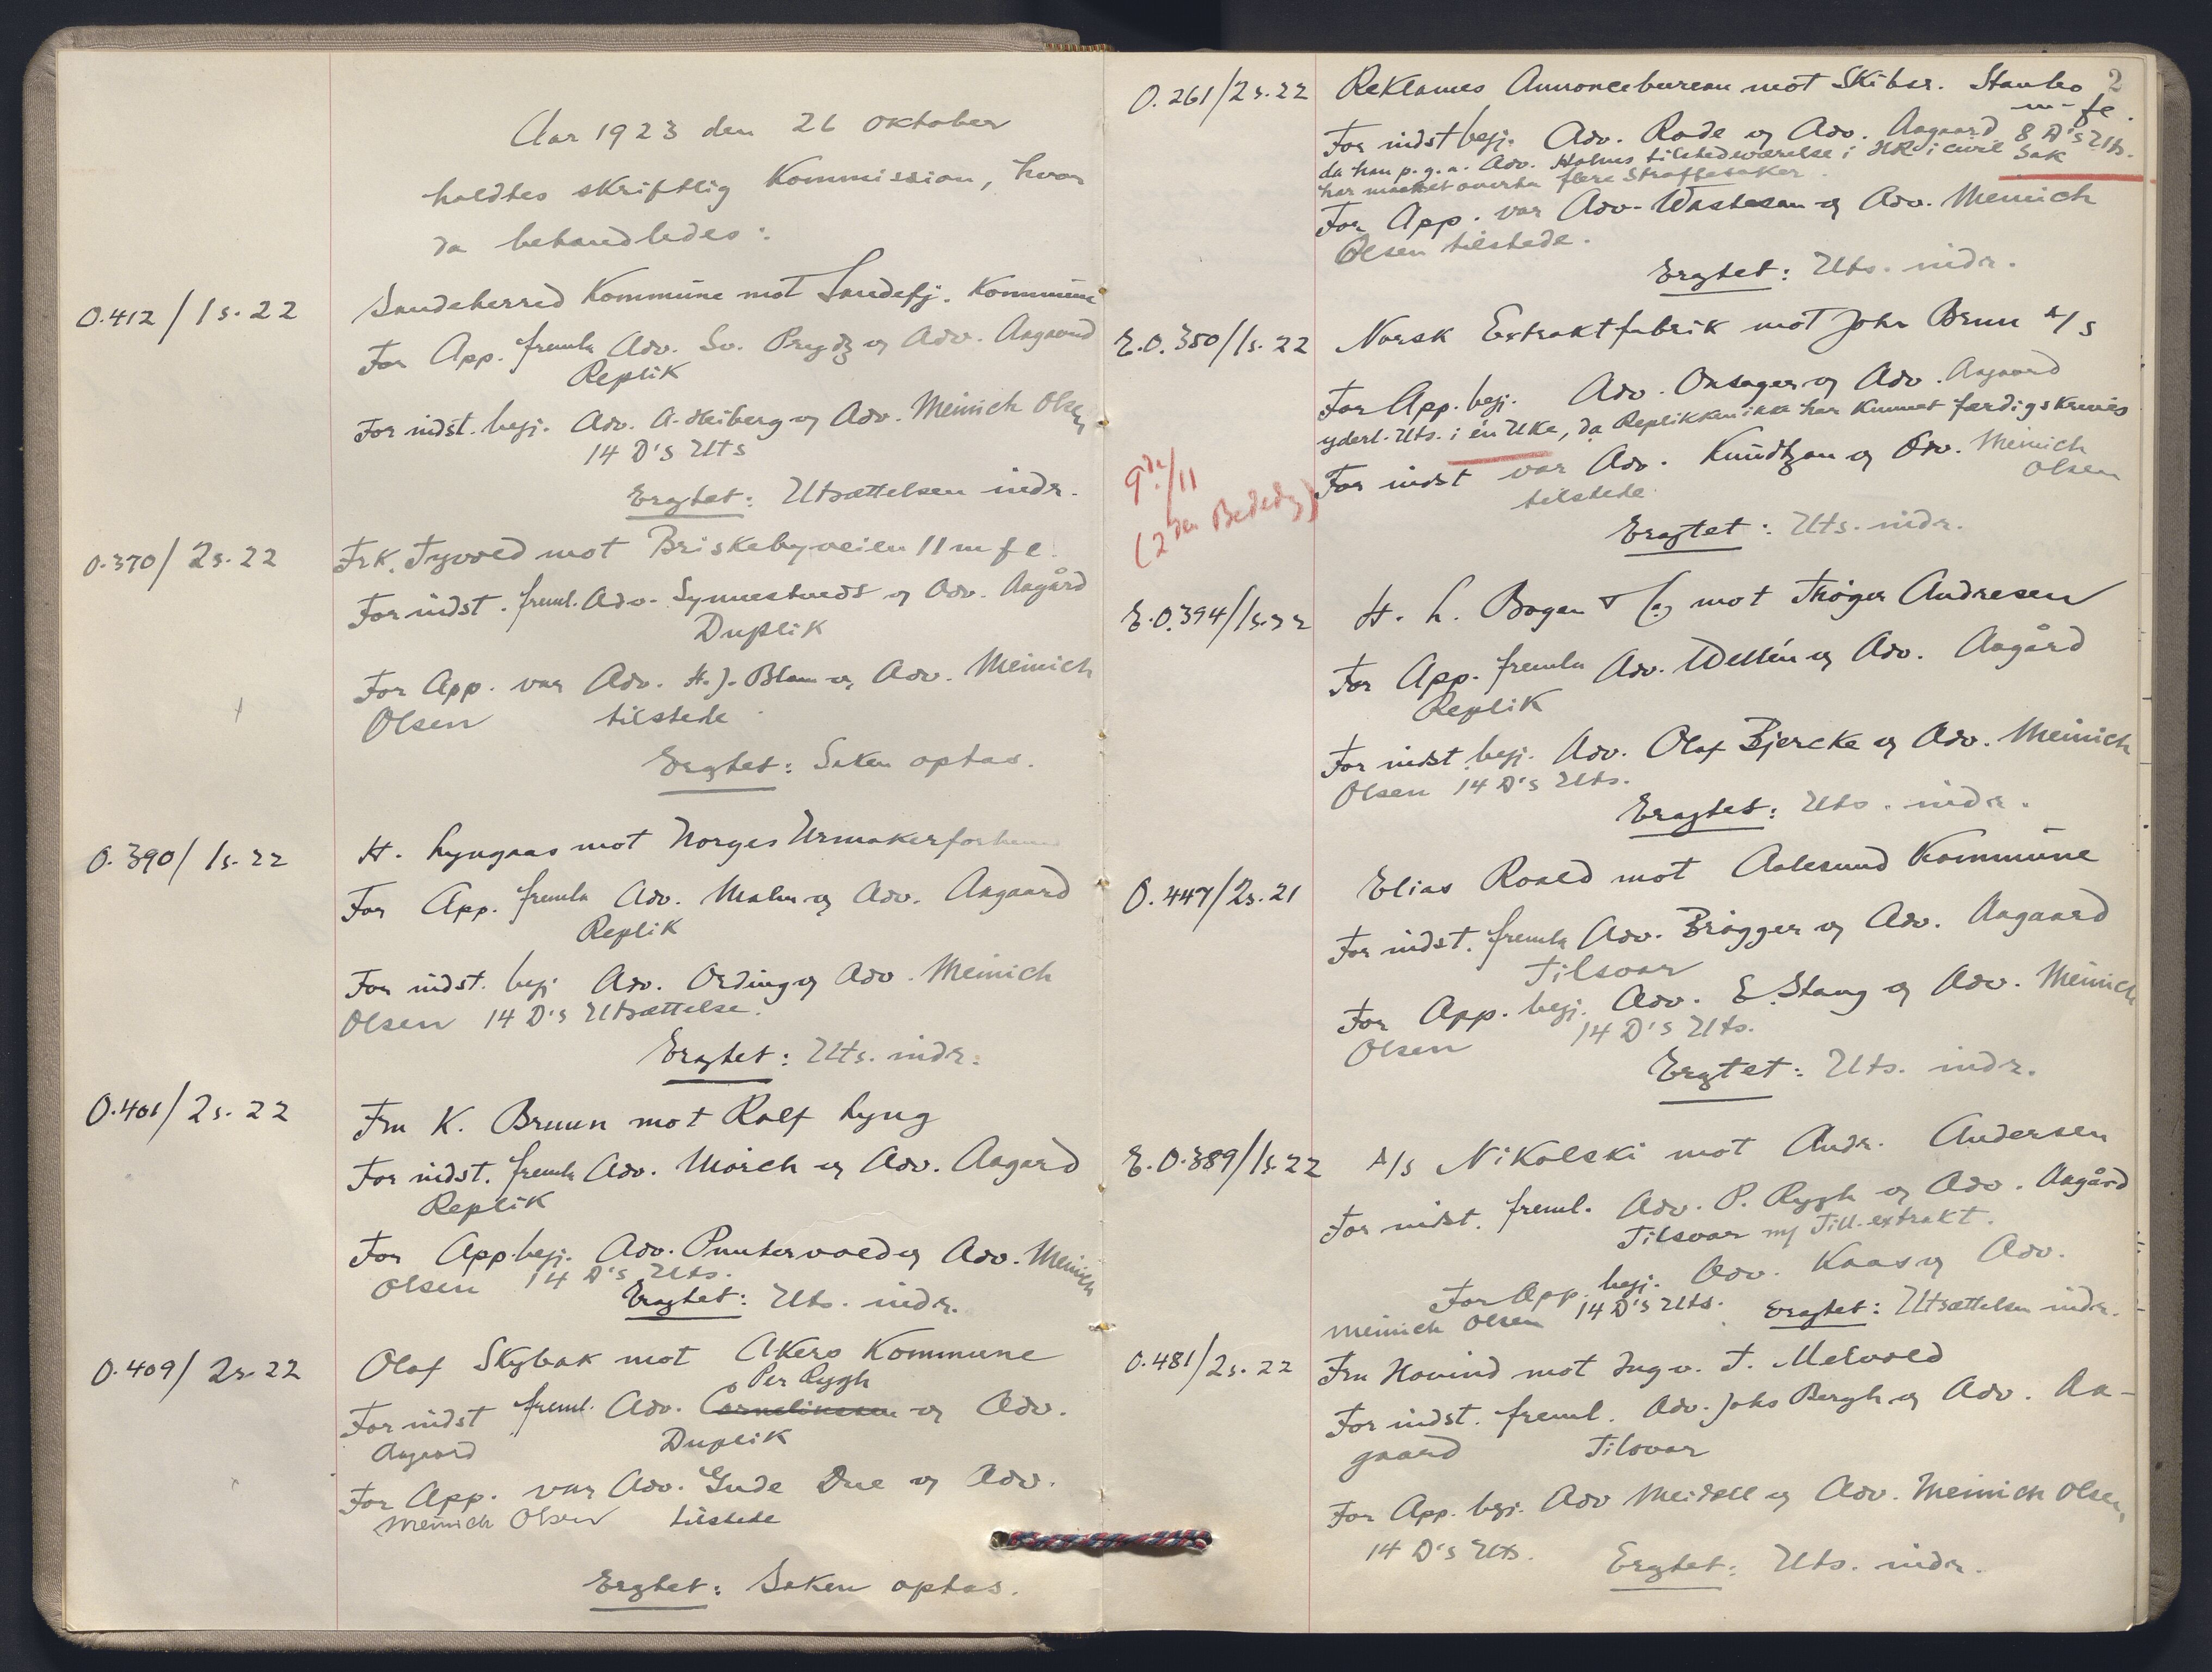 Aar 1923 den 26 Oktober
holdtes skriftlig Kommission, hvor
da behandledes:
O.412/1s.22 Sandeherred Kommune mot Sandefj. Kommune
For App. fremla Adv. Sv. Prydz og Adv. Aagaard
Replik
For indst. begj. Adv. A. Heiberg og Adv. Meinich Olsen
14 D's Uts
Eragtet: Utsættelsen indr.
O.370/2s.22 Frk. Tyvold mot Briskebyveien 11 m fl.
For indst. freml. Adv. Synnestvedt og Adv. Aagård
Duplik
For App. var Adv. H.J. Blom og Adv. Meinich
Olsen tilstede.
Eragtet: Saken optas.
O.390/1s.22 H. Lyngaas mot Norges Urmakerforbund
For App. fremla Adv. Malm og Adv. Aagaard
Replik
For indst. begj. Adv. Ording og Adv. Meinich
Olsen 14 D's Utsættelse.
Eragtet: Uts. indr.
O.401/2s.22 Fru K. Bruun mot Rolf Lyng
For indst. fremla Adv. Mörch og Adv. Aagard
Replik
For App. begj. Adv. Puntervold og Adv. Meinich
Olsen 14 D's Uts.
Eragtet: Uts. indr.
O.409/2s.22 Olaf Skybak mot Akers Kommune
Per Rygh
For indst freml. Adv. Cornelinssen og Adv.
Aagaard Duplik
For App. var Adv. Gude Due og Adv.
Meinich Olsen tilstede
Eragtet: Saken optas.
2
O.261/2s.22 Reklames Annoncebureau mot Skibsr. Staubo
m-fl.
For indst begj. Adv. Rode og Adv. Aagaard 8 D's Uts.
da han p.g.a. Adv. Holms tilstedeværelse i HR i civil Sak
har maattet overta flere Straffesaker.
For App. var Adv. Wastesen og Adv. Meinich
Olsen tilstede.
Eragtet: Uts. indr.
E.O.350/1s.22 Norsk Extraktfabrik mot Johr Brun A/S
For App. begj. Adv. Onsager og Adv. Aagaard
yderl. Uts. i én Uke, da Replikken ikke har kunnet færdigskrives
9de/11
(2den Bededag)
For indst var Adv. Knudtzon og Adv. Meinich
Olsen
tilstede.
Eragtet: Uts. indr.
E.O.394/1s.22 H. L. Bogen & Co mot Thöger Andresen
For App. fremla Adv. Wellén og Adv. Aagård
Replik
For indst. begj. Adv. Olaf Bjercke og Adv. Meinich
Olsen 14 D's Uts.
Eragtet: Uts. indr.
O.447/2s.21 Elias Roald mot Aalesund Kommune
For indst. fremla Adv. Brögger og Adv. Aagaard
Tilsvar
For App. begj. Adv. E. Stang og Adv. Meinich
Olsen 14 D's Uts.
Eragtet: Uts. indr.
E.O.389/1s.22 A/S Nikolski mot Andr. Andersen
For indst. freml. Adv. P. Rygh og Adv. Aagård
Tilsvar m/ Till.extrakt.
For App. begj. Adv. Kaas og Adv.
Meinich Olsen 14 D's Uts. Eragtet: Utsættelsen indr.
O.481/2s.22 Fru Hovind mot Ingv. T. Melvold
For indst. freml. Adv. Johs Bergh og Adv. Aa-
gaard Tilsvar
For App. begj. Adv Meidell og Adv. Meinich Olsen,
14 D's Uts. Eragtet: Uts. indr.